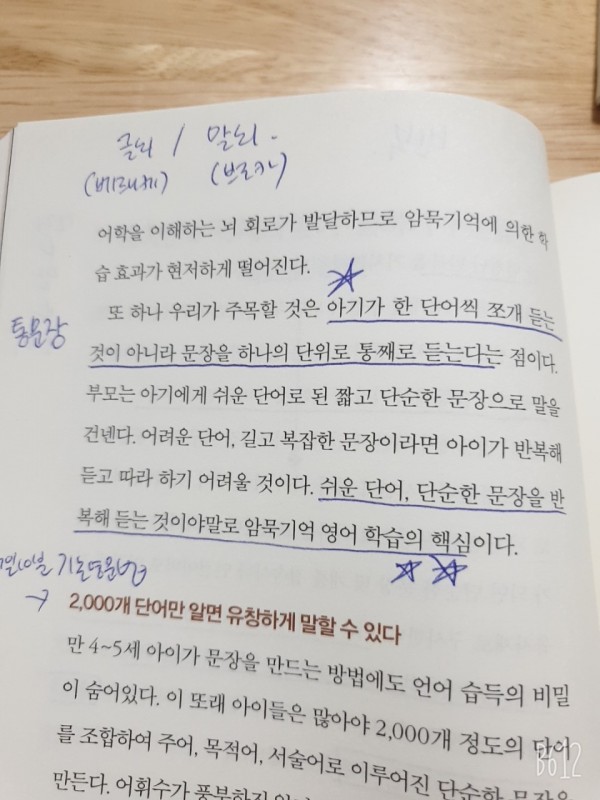 글뇌 / 말뇌.
(베르니케) (브로카)
어학을 이해하는 뇌 회로가 발달하므로 암묵기억에 의한 학
습 효과가 현저하게 떨어진다.
또 하나 우리가 주목할 것은 아기가 한 단어씩 쪼개 듣는
통문장
것이 아니라 문장을 하나의 단위로 통째로 듣는다는 점이다.
부모는 아기에게 쉬운 단어로 된 짧고 단순한 문장으로 말을
건넨다. 어려운 단어, 길고 복잡한 문장이라면 아이가 반복해
듣고 따라 하기 어려울 것이다. 쉬운 단어, 단순한 문장을 반
복해 듣는 것이야말로 암묵기억 영어 학습의 핵심이다.
2,000개 단어만 알면 유창하게 말할 수 있다
만 4~5세 아이가 문장을 만드는 방법에도 언어 습득의 비밀
이 숨어있다. 이 또래 아이들은 많아야 2,000개 정도의 단어
를 조합하여 주어, 목적어, 서술어로 이루어진 단순한 문장을
만든다. 어휘수가 풍부하지
B612